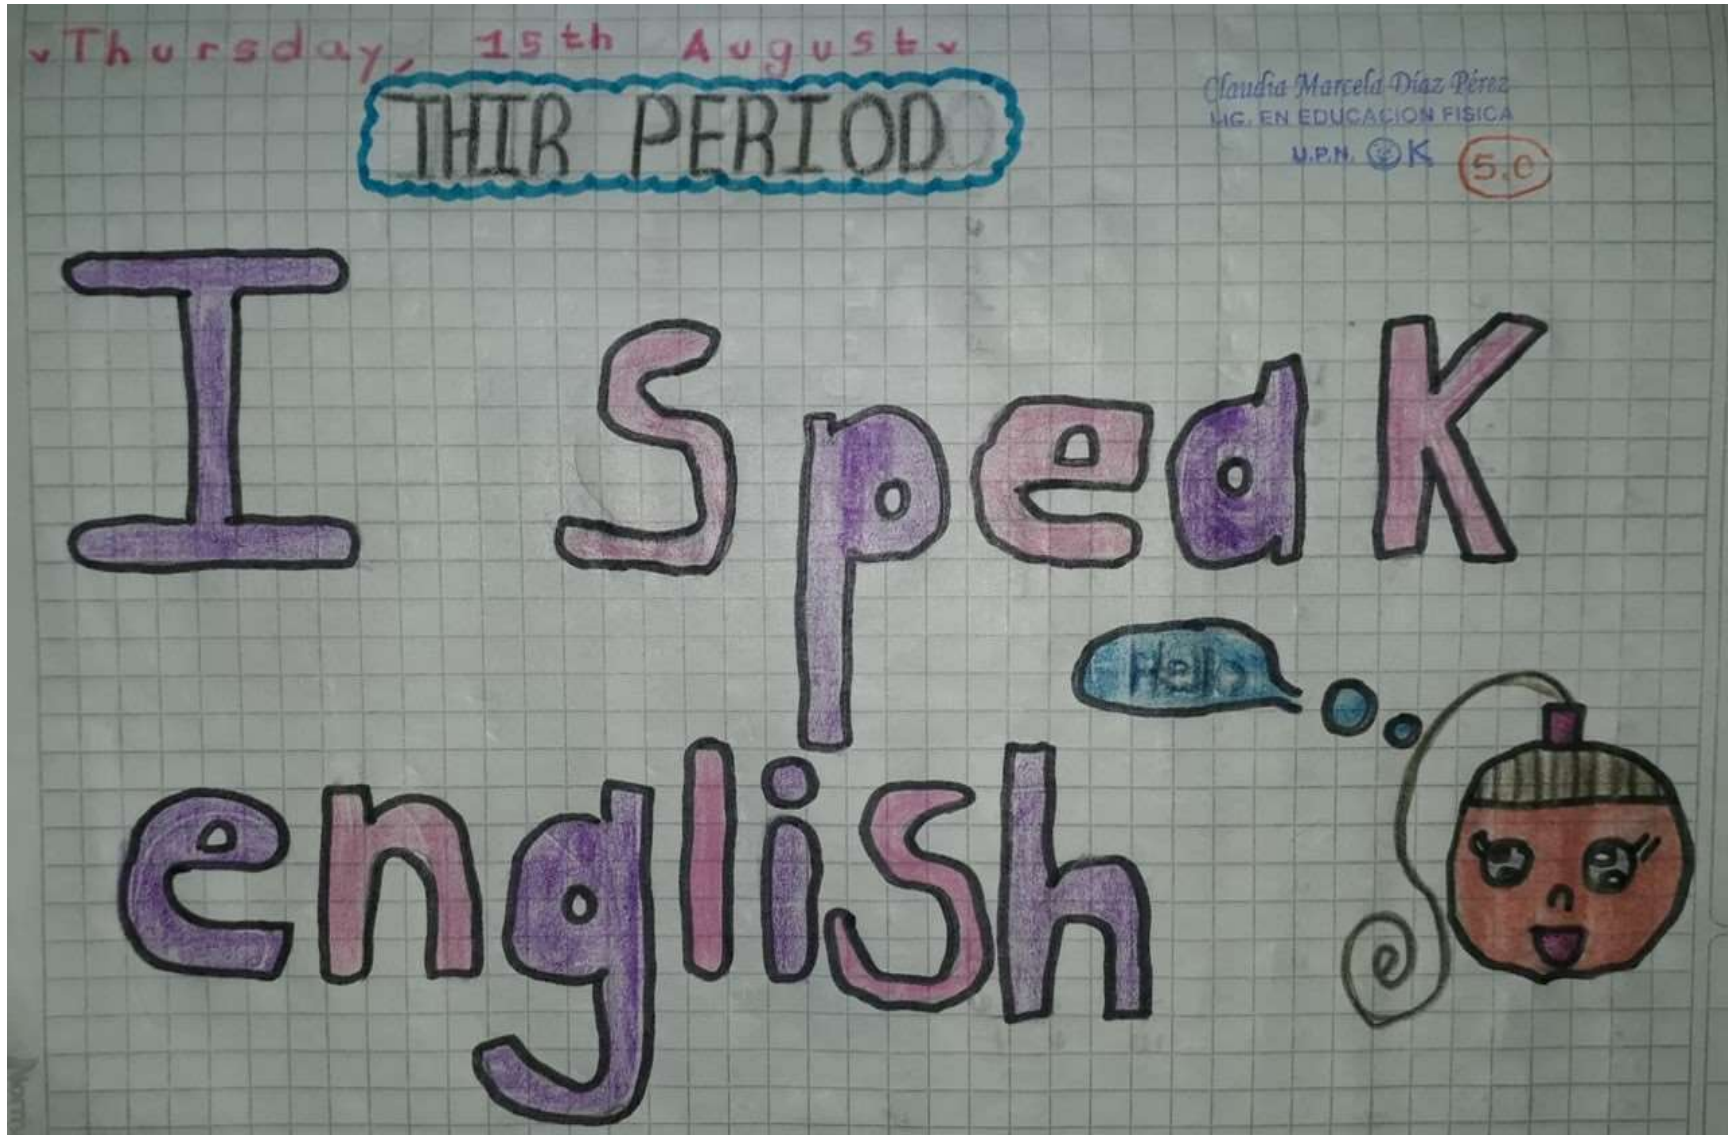 Thursday, 15th August
THIR PERIOD
Claudia Marcela Díaz Pérez
LIC. EN EDUCACION FISICA
U.P.N. OK 5.0
I speak
Hello
english